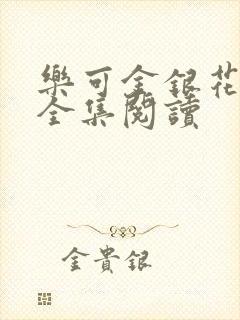 樂可金銀花
全集閱讀
金貴銀